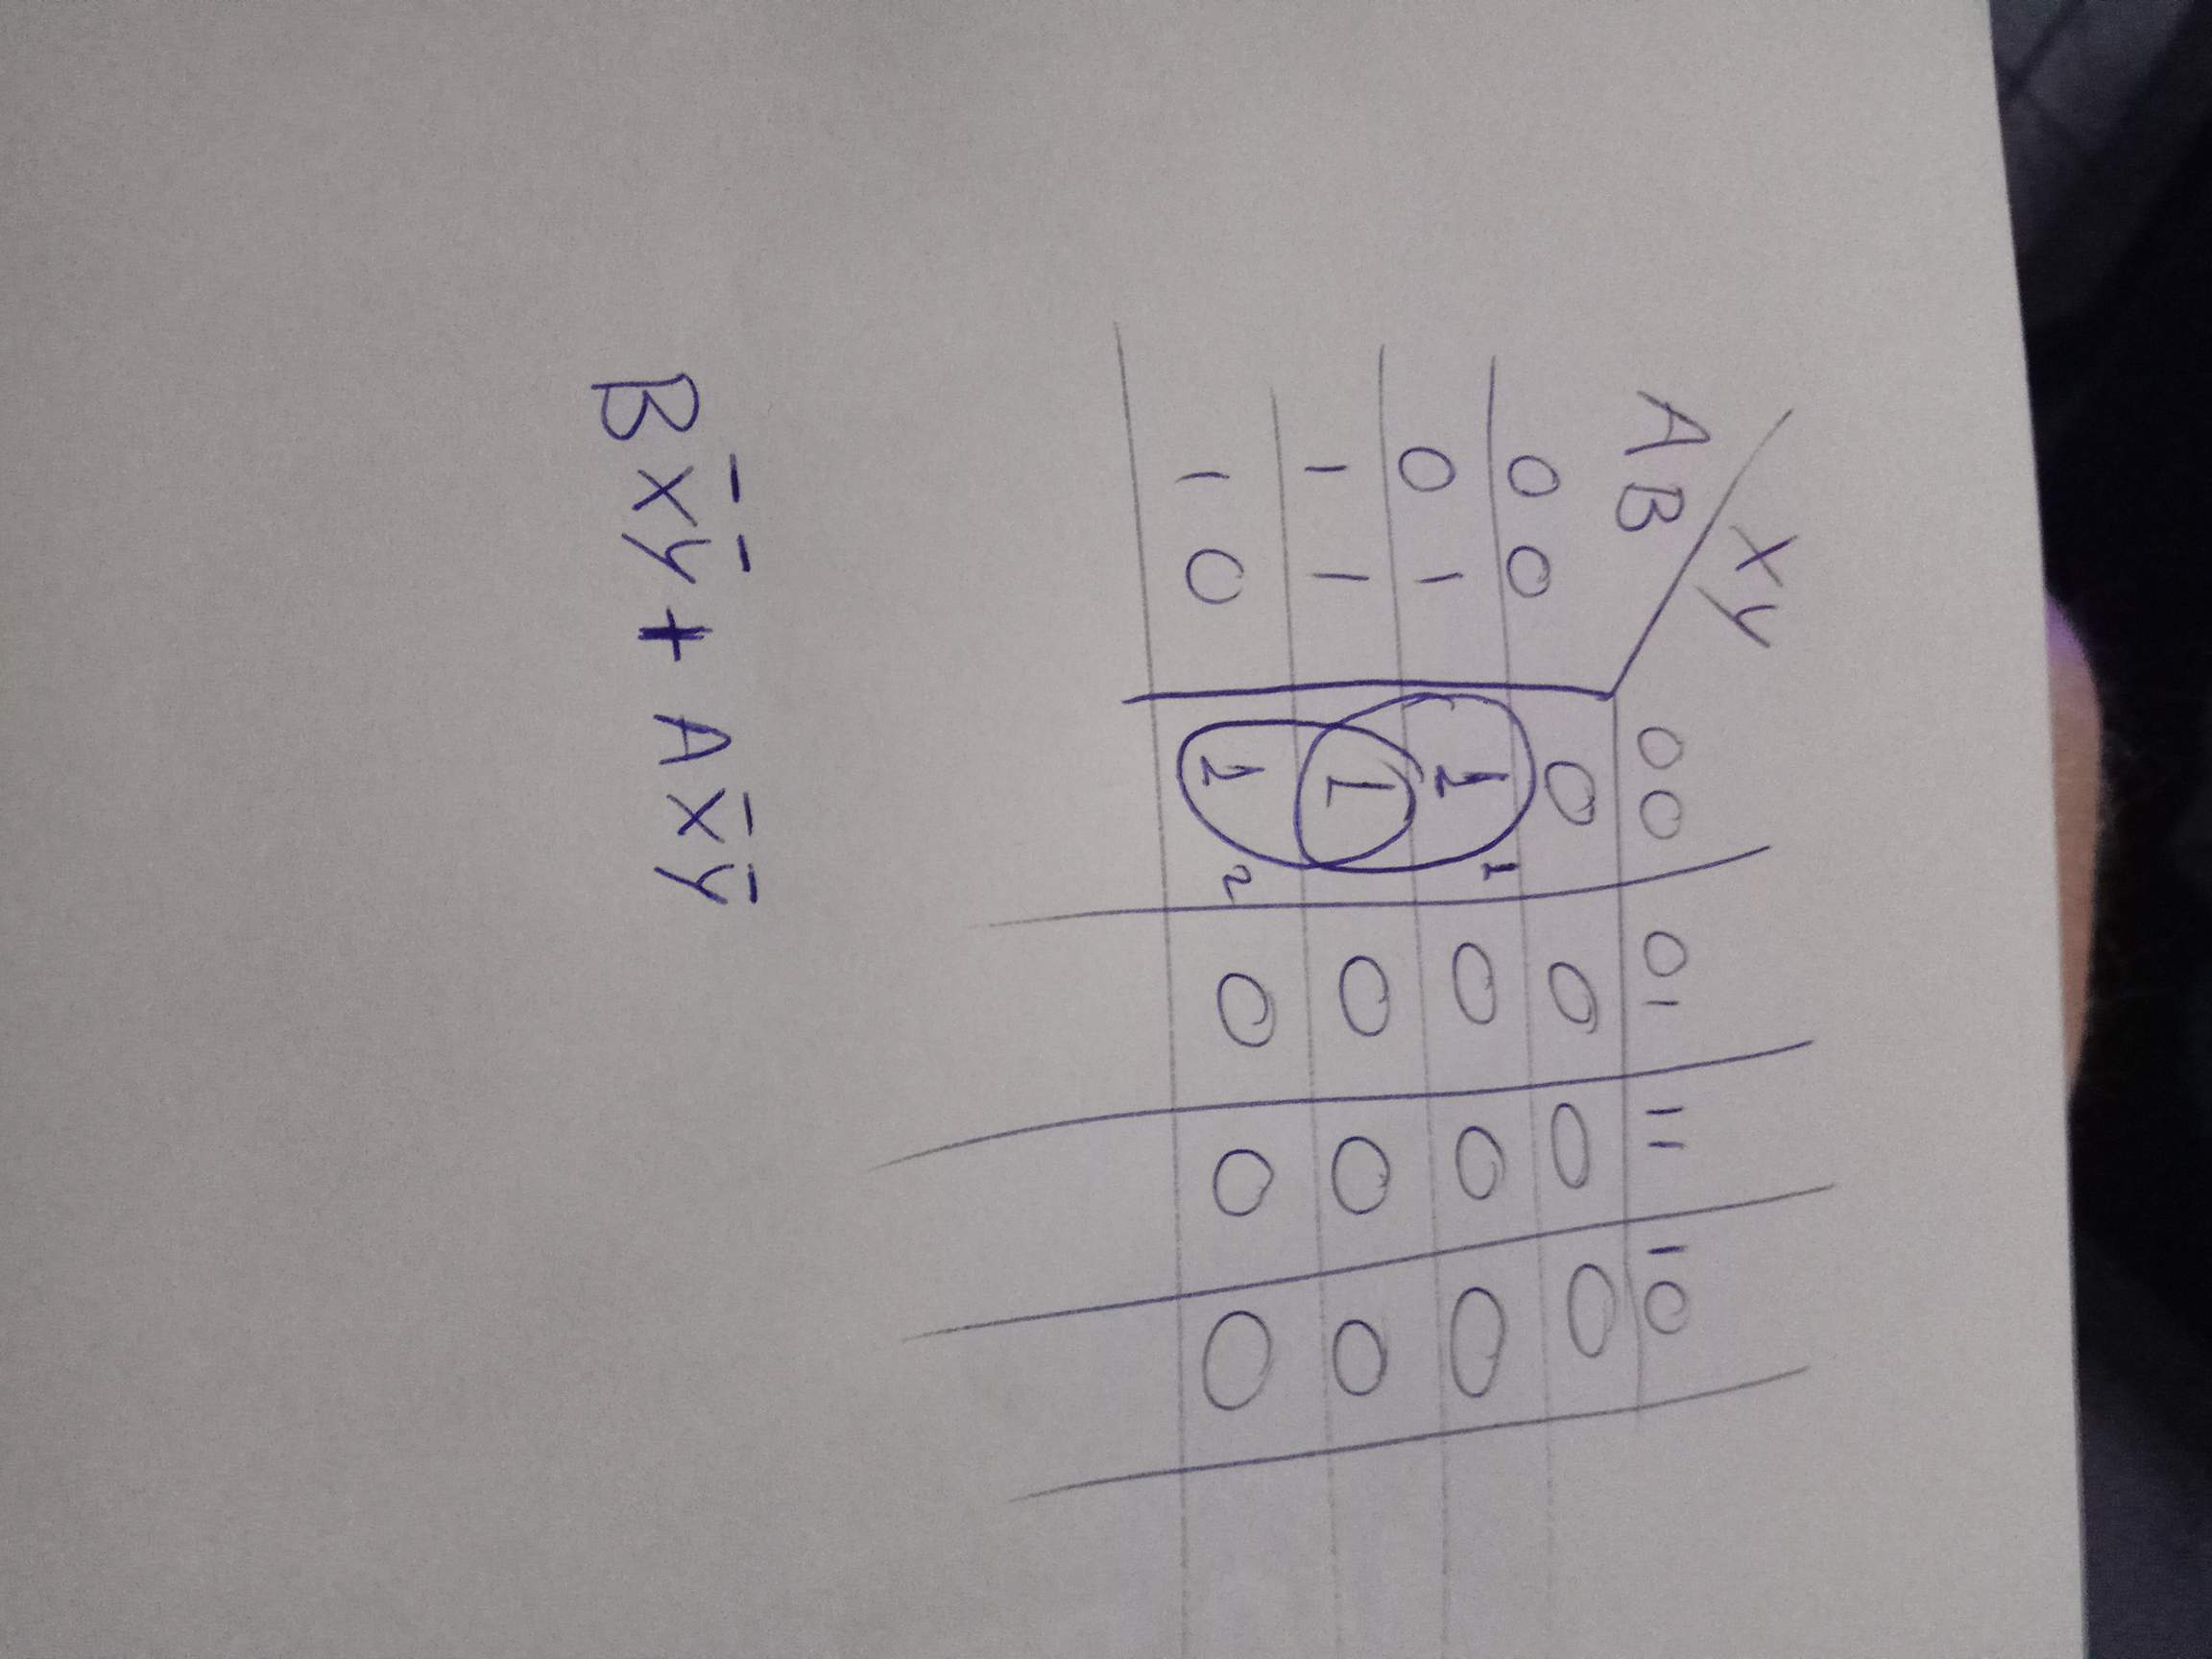 XY
AB 00 01 11 10
00 0 0 0 0
01 1 1 0 0 0
11 1 0 0 0
10 1 2 0 0 0
BX̅Y̅ + AX̅Y̅